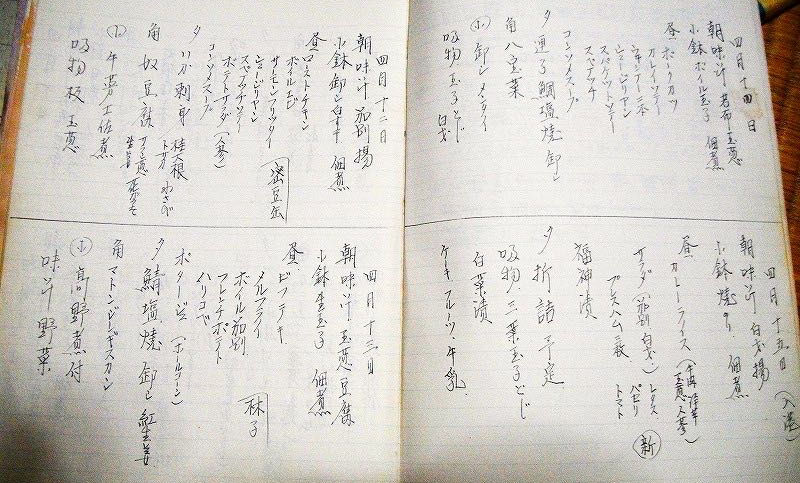 四月十二日
朝 味噌汁 茄別 揚
小鉢 卸し白す 佃煮
昼 ローストチキン
ボイルエビ
サーモンフライ
スパゲッチー
ポテトサラダ(人参)
コーンソメスープ
密豆缶
夕 いか刺身 桂大根 わさび
角 奴豆腐
小 牛蒡土佐煮
吸物 板 玉葱
四月十三日
朝 味汁 玉葱 豆腐
小鉢 生玉子 佃煮
昼 ビフテキ
メルフライ
ボイル茄別
フレンチポテト
ハリコベ
ポタージュ(ホールコーン)
林子
夕 鯖塩焼 卸し 紅生姜
角 マトンジンギスカン
小 高野煮付
味汁 野菜
四月十四日
朝 味汁 若布 玉葱
小鉢 ボイル玉子 佃煮
昼 ポークカツ
カレーソテー
ウインナー 二本
スパゲットソテー
スペナッチ
コーンソメスープ
夕 連子鯛塩焼 卸し
角 八宝菜
小 卸しメンタイ
吸物 玉子とじ
白才
四月十五日(入港)
朝 味噌汁 白才 揚
小鉢 焼のり 佃煮
昼 カレーライス(牛肉 洋芋 玉葱 人参)
サラダ(茄別 白才) レタス パセリ トマト
プレスハム 二枚
新
福神漬
夕 折詰予定
吸物 三葉 玉子とじ
白菜漬
ケーキ フルーツ 牛乳